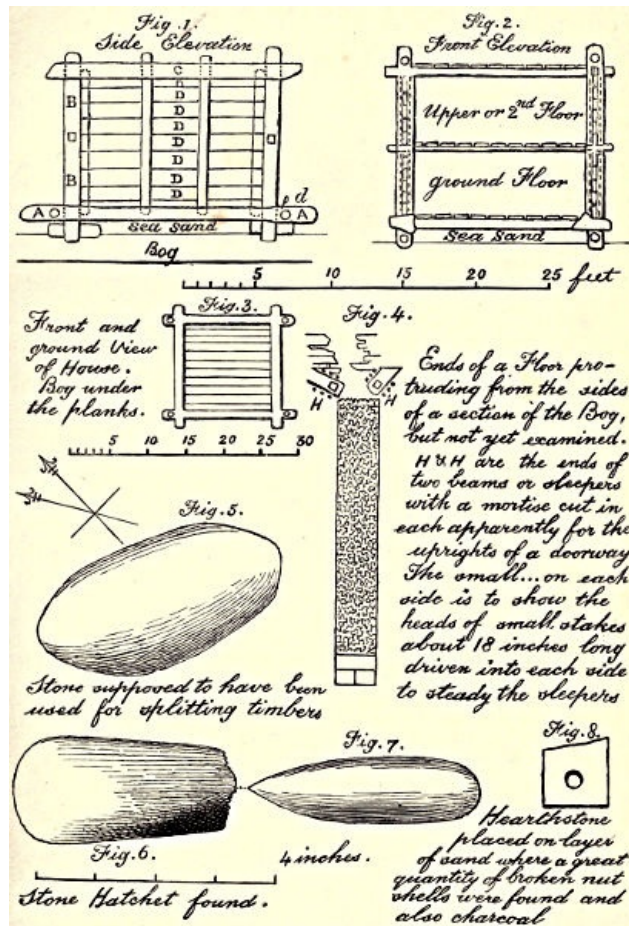 Fig. 1.
Side Elevation
C
D
B
D
D
D
D
D
B
D
D
d
A
A
Sea Sand
Bog
Fig. 2.
Front Elevation
Upper or 2nd Floor
ground Floor
Sea Sand
5 10 15 20 25 feet
Front and
ground View
of House.
Bog under
the planks.
Fig. 3.
5 10 15 20 25 30
Fig. 4.
H
H
Ends of a Floor pro-
truding from the sides
of a section of the Bog,
but not yet examined.
H & H are the ends of
two beams or sleepers
with a mortise cut in
each apparently for the
uprights of a doorway
The small... on each
side is to show the
heads of small stakes
about 18 inches long
driven into each side
to steady the sleepers
Fig. 5.
Stone supposed to have been
used for splitting timbers
Fig. 7.
Fig. 6.
4 inches.
Stone Hatchet found.
Fig. 8.
Hearthstone
placed on layer
of sand where a great
quantity of broken nut
shells were found and
also charcoal